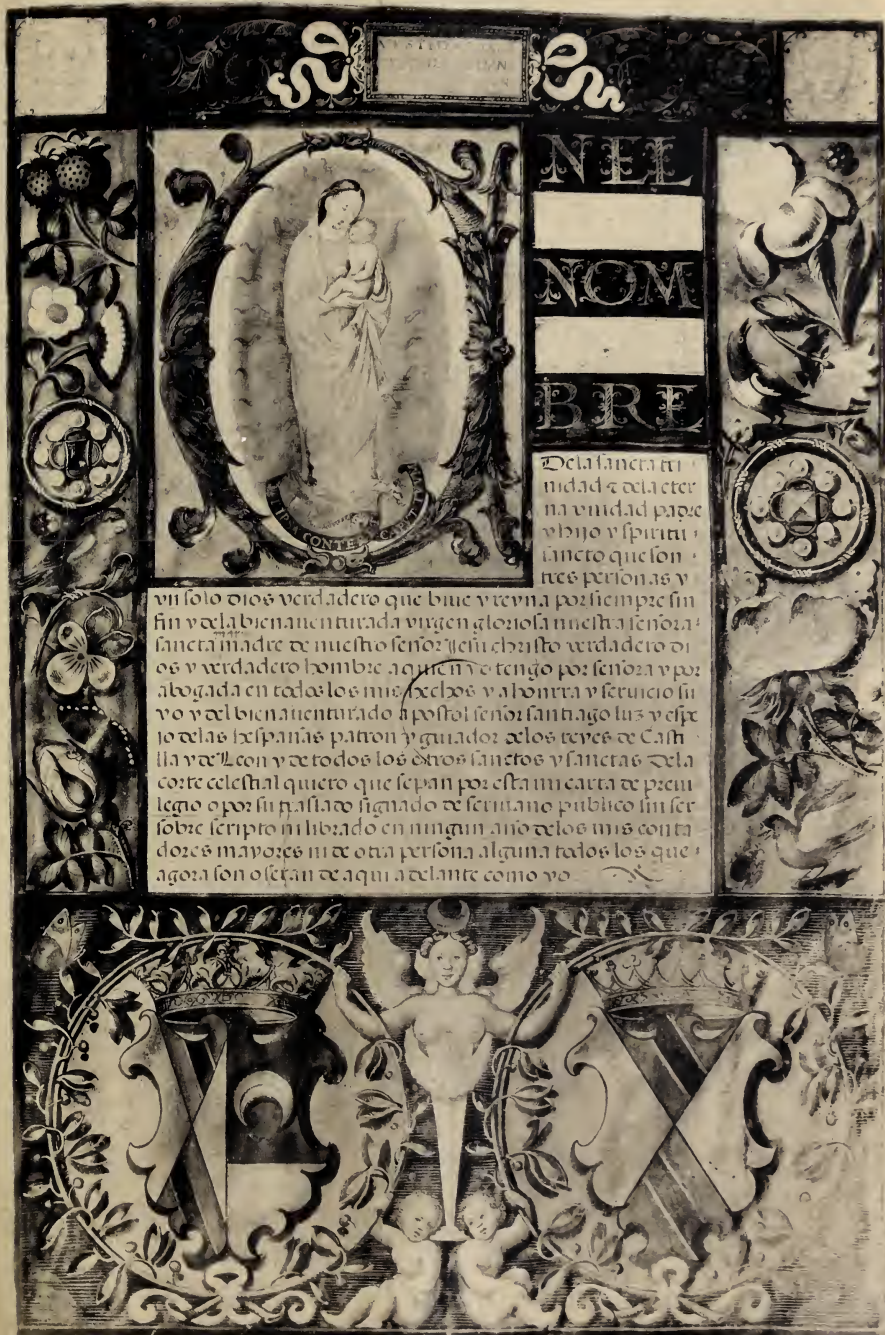 NEL
NOM
BRE
IPSA CONTERET CAPUT TUUM
De la sancta tri
nidad & dela eter
na vnidad padre
y hijo y spiritu
sancto que son
tres personas y
vn solo dios verdadero que biue y reyna por siempre sin
fin y dela bienauenturada virgen gloriosa nuestra señora
sancta maria madre de nuestro señor Jesu christo verdadero di
os y verdadero hombre a quien yo tengo por señora y por
abogada en todos los mis hechos y a honrra y seruicio su
yo y del bienauenturado apostol señor santiago luz y espe
jo delas hespañas patron y guiador delos reyes de Casti
lla y de Leon y de todos los otros sanctos y sanctas Dela
corte celestial quiero que sepan por esta mi carta de preui
legio o por su traslado signado de scriuano publico sin ser
sobre scripto ni librado en ningun año delos mis conta
dores mayores ni de otra persona alguna todos los que
agora son o seran de aqui adelante como yo